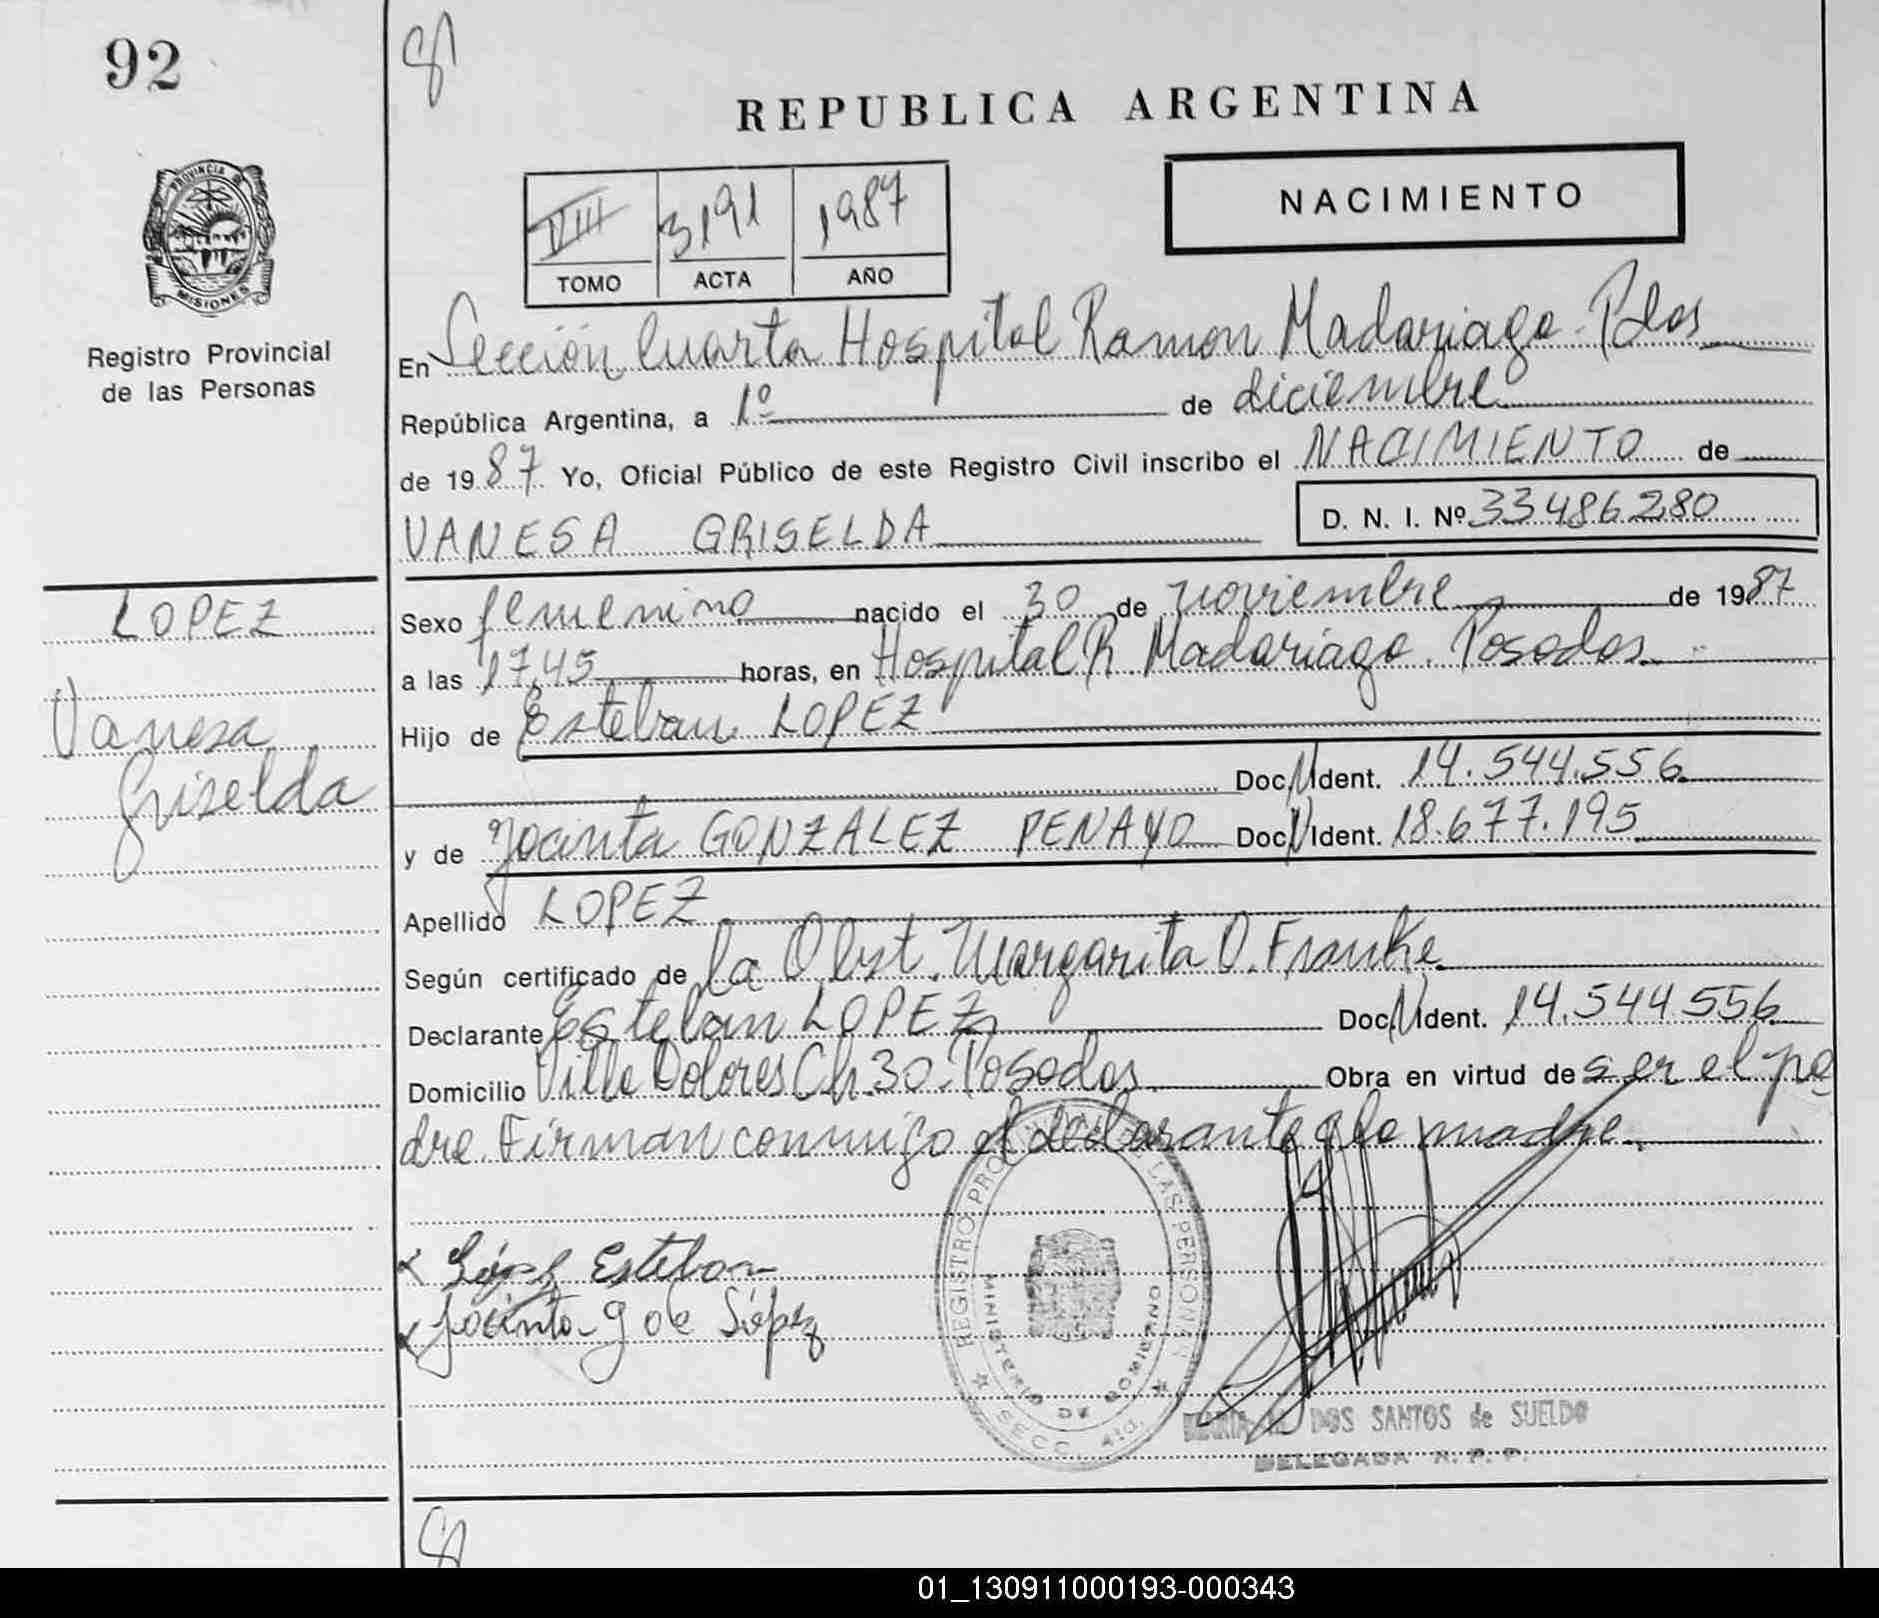 92
REPUBLICA ARGENTINA
NACIMIENTO
VIII 3191 1987
TOMO ACTA AÑO
PROVINCIA DE MISIONES
Registro Provincial
de las Personas
En Sección Cuarta Hospital Ramon Madariaga. Pdas
República Argentina, a 1º de diciembre
de 1987. Yo, Oficial Público de este Registro Civil inscribo el NACIMIENTO de
VANESA GRISELDA D. N. I. Nº 33486280
LOPEZ
Vanesa
Griselda
Sexo femenino nacido el 30 de noviembre de 1987
a las 17,45 horas, en Hospital R. Madariaga. Posadas
Hijo de Esteban LOPEZ
Doc.N.Ident. 14.544.556
y de Jacinta GONZALEZ PENAYO Doc.N.Ident. 18.677.195
Apellido LOPEZ
Según certificado de la Obst. Margarita O. Franke
Declarante Esteban LOPEZ Doc.N.Ident. 14.544.556
Domicilio Villa Dolores Ch.30. Posadas Obra en virtud de ser el pa
dre. Firman conmigo el declarante y la madre.
López Esteban
Jacinta G de López
REGISTRO PROVINCIAL DE LAS PERSONAS
MINISTERIO DE GOBIERNO
SECC. 4ta.
MARIA M. DOS SANTOS de SUELDO
DELEGADA R. P. P.
01_130911000193-000343